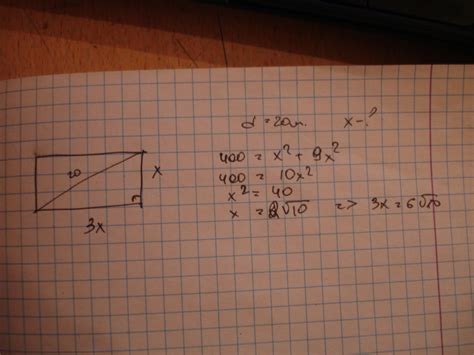 d = 20 cm. x - ?
20
x
3x
400 = x² + 9x²
400 = 10x²
x² = 40
x = 2√10 => 3x = 6√10